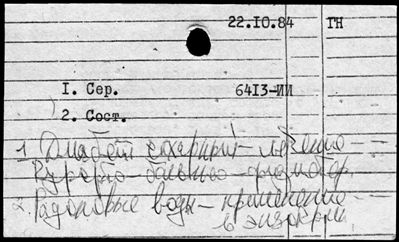 22.10.84 ГН
1. Сер. 6413-ИИ
2. Сост.
1. Диабет сахарный - лечение -
Курортно - бальнео - физиотер.
2. Радоновые воды - применение -
в эндокрин.